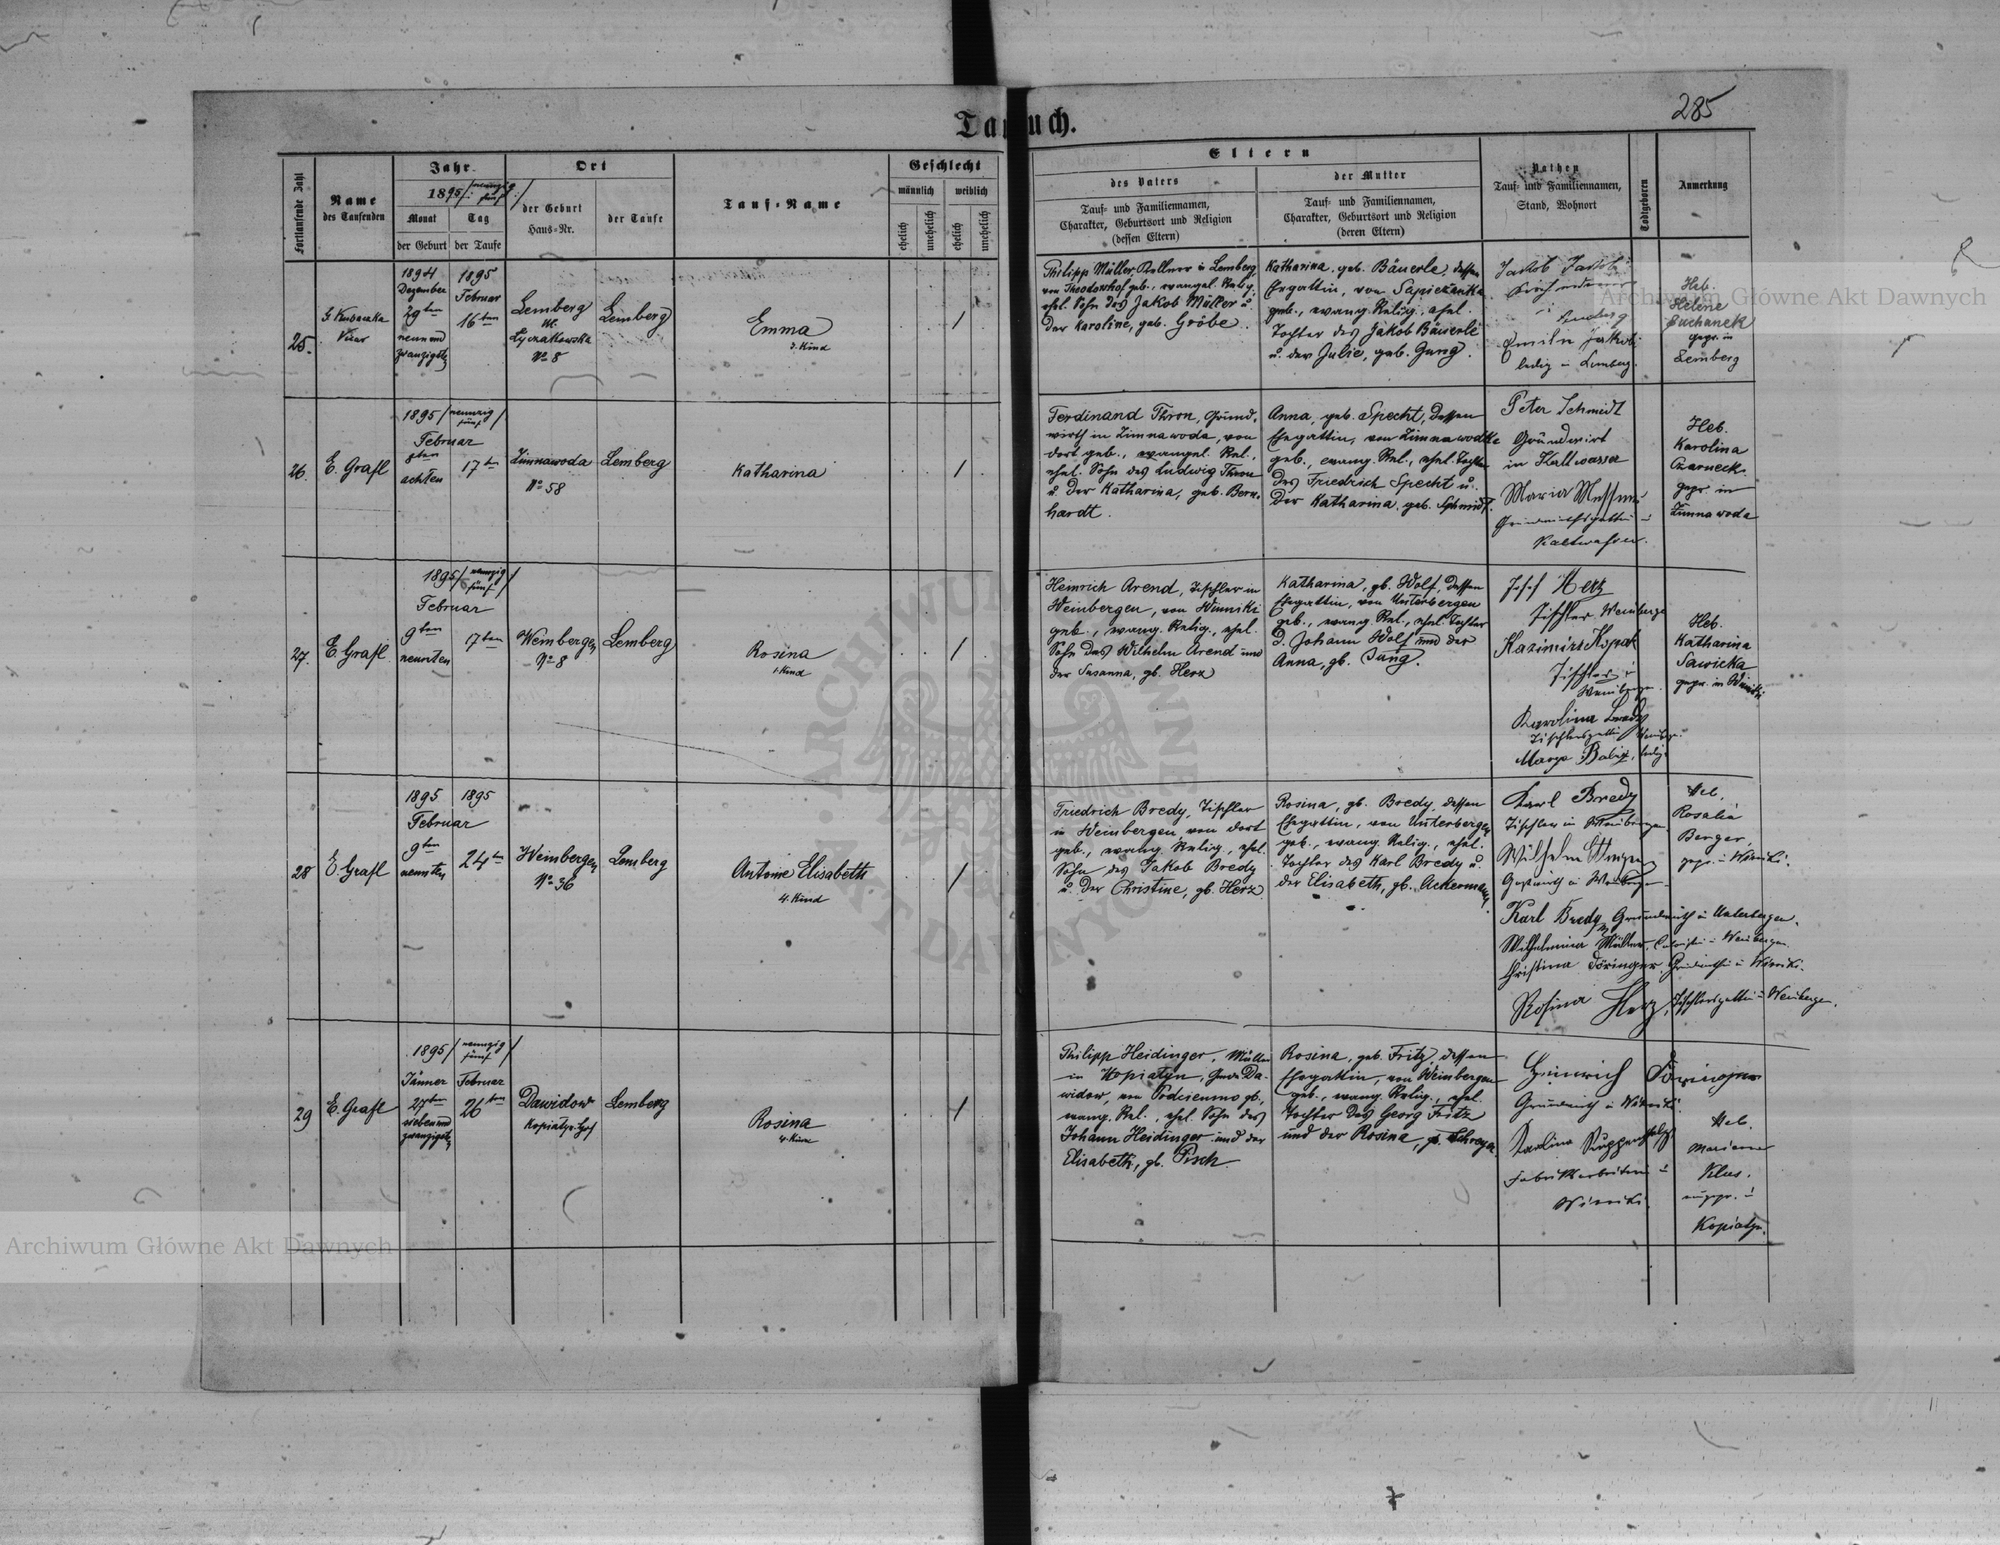 285
Taufbuch.
Fortlaufende Zahl
Name
des Taufenden
Jahr
1895 / neunzig
fünf /
Monat
Tag
der Geburt
der Taufe
Ort
der Geburt
Haus-Nr.
der Taufe
Tauf-Name
Geschlecht
männlich
weiblich
ehelich
unehelich
ehelich
unehelich
Eltern
des Vaters
Tauf- und Familiennamen,
Charakter, Geburtsort und Religion
(dessen Eltern)
der Mutter
Tauf- und Familiennamen,
Charakter, Geburtsort und Religion
(deren Eltern)
Pathen
Tauf- und Familiennamen,
Stand, Wohnort
Todtgeboren
Anmerkung
25.
Vicar
1894
Dezember
29ten
neun und
zwanzigsten
1895
Februar
16ten
Lemberg
Lyczakowska
No 8
Lemberg
Emma
3. Kind
Philipp Müller, Kellner in Lemberg,
von Theodorshof geb., evangel. Relig.,
ehel. Sohn des Jakob Müller u.
der Karoline, geb. Gröbe.
Katharina, geb. Bäuerle, dessen
Ehegattin, von Sapiezanka
geb., evang. Relig., ehel.
Tochter des Jakob Bäuerle
u. der Julie, geb. Jung.
Jakob Jakobi
Emilie Jakobi
ledig in Lemberg.
Heb.
Helene
Suchanek
gepr. in
Lemberg
26.
E. Grafl
1895 / neunzig
fünf /
Februar
8ten
achten
17ten
Zimnawoda
No 58
Lemberg
Katharina
Ferdinand Thron, Grund-
wirth in Zimnawoda, von
dort geb., evangel. Rel.,
ehel. Sohn des Ludwig Thron
u. der Katharina, geb. Bern-
hardt.
Anna, geb. Specht, dessen
Ehegattin, von Zimnawodka
geb., evang. Rel., ehel. Tochter
des Friedrich Specht u.
der Katharina, geb. Schmidt.
Peter Schmidt
Gründwirt
in Kaltwasser
Maria
Kaltwasser.
Heb.
Karolina
Czarneck.
gepr. in
Zimnawoda
27.
E. Grafl
1895 / neunzig
fünf /
Februar
9ten
neunten
17ten
Weinbergen
No 8
Lemberg
Rosina
1. Kind
Heinrich Arend, Tischler in
Weinbergen, von Winniki
geb., evang. Relig., ehel.
Sohn des Wilhelm Arend und
der Susanna, gb. Herz
Katharina, gb. Wolf, dessen
Ehegattin, von Unterbergen
geb., evang. Rel., ehel. Tochter
d. Johann Wolf und der
Anna, gb. Jung.
Josef Herz
Tischler Weinbergen
Tischler in
Weinbergen.
Karolina Bredy
Marya
ledig
Heb.
Katharina
Sawicka
gepr. in Winniki
28
E. Grafl
1895
1895
Februar
9ten
neunten
24ten
Weinbergen
No 36
Lemberg
Antonie Elisabeth
4. Kind
Friedrich Bredy, Tischler
in Weinbergen, von dort
geb., evang. Relig., ehel.
Sohn des Jakob Bredy
u. der Christine, gb. Herz
Rosina, gb. Bredy, dessen
Ehegattin, von Unterbergen
geb., evang. Relig., ehel.
Tochter des Karl Bredy u.
der Elisabeth, gb. Ackermann.
Karl Bredy
Tischler in Weinbergen
Wilhelm
Karl Bredy, Grundwirth in Unterbergen.
Wilhelmina Müller, in Weinbergen.
Christina Döringer, in Winniki.
Rosina Herz, Tischlersgattin in Weinbergen.
Heb.
Rosalia
Berger,
gepr. in Winniki.
29
E. Grafl
1895 / neunzig
fünf /
Jänner
27ten
sieben und
zwanzigsten
Februar
26ten
Dawidow
Lemberg
Rosina
4. Kind
Philipp Heidinger, Müller
in Kopiatyn, Gmde Da-
widow, von Podciemno gb.,
evang. Rel., ehel. Sohn des
Johann Heidinger und der
Elisabeth, gb. Pisch.
Rosina, geb. Fritz, dessen
Ehegattin, von Weinbergen
geb., evang. Relig., ehel.
Tochter des Georg Fritz
und der Rosina, gb. Schreyer.
Heinrich Döringer
Grundwirth in Winniki.
Karolina
Fabrikarbeiterin in
Winniki.
Heb.
Marianna
Klus.
ungepr. in
Kopiatyn.
Archiwum Główne Akt Dawnych
Archiwum Główne Akt Dawnych